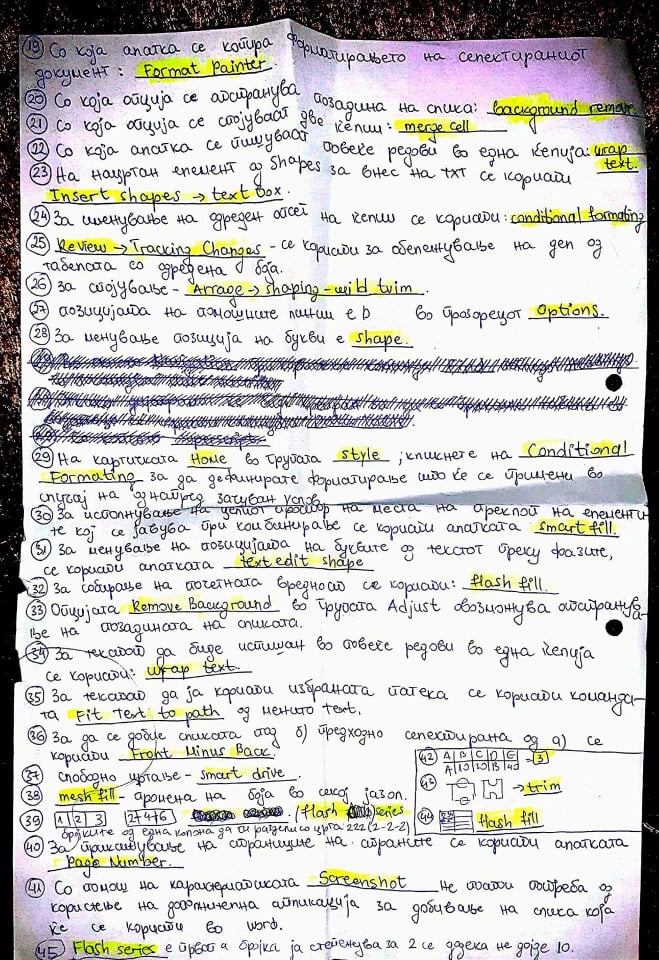 19 Со која алатка се копира форматирањето на селектираниот
документ: Format Painter.
20 Со која опција се отстранува позадина на слика: background remove.
21 Со која опција се спојуваат две ќелии: merge cell
22 Со која алатка се пишуваат повеќе редови во една ќелија: wrap
text.
23 На нацртан елемент од Shapes за внес на тхт се користи
Insert shapes → text box.
24 За именување на одреден опсег на ќелии се користи: conditional formating
25 Review → Tracking Changes - се користи за обележување на дел од
табелата со одредена боја.
26 За спојување - Arrage → shaping - weld trim.
27 позицијата на помошните линии е во прозорецот Options.
28 За менување позиција на букви е shape.
29 На картичката Home во групата style ; кликнете на Conditional
Formating за да дефинирате форматирање што ќе се примени во
случај на однапред зачуван услов.
30 За исполнување на целиот простор на места на преклоп на елементи-
те кој се јавува при комбинирање се користи алатката smart fill.
31 За менување на позицијата на буквите од текстот преку фазите,
се користи алатката text edit shape
32 За собирање на почетната вредност се користи: flash fill.
33 Опцијата Remove Background во групата Adjust овозможува отстранува-
ње на позадината на сликата.
34 За текстот да биде испишан во повеќе редови во една ќелија
се користи: wrap text.
35 За текстот да ја користи избраната патека се користи команда-
та Fit Text to path од менито Text.
36 За да се добие сликата под б) предходно селектирана од а) се
користи Front Minus Back.
37 слободно цртање - smart drive.
38 mesh fill - промена на боја во секој јазол.
39 1 2 3 2 4 6 / flash series
бројките од една колона да ги раздели со црта 222 (2-2-2)
42 A B C D E
A 10 10 15 40 = 3
43 → trim
44 flash fill
40 За прикажување на страниците на страните се користи алатката
Page Number.
41 Со помош на карактеристиката Screenshot не постои потреба од
користење на дополнителна апликација за добивање на слика која
ќе се користи во word.
45 Flash series е првата бројка ја степенува за 2 се додека не дојде 10.